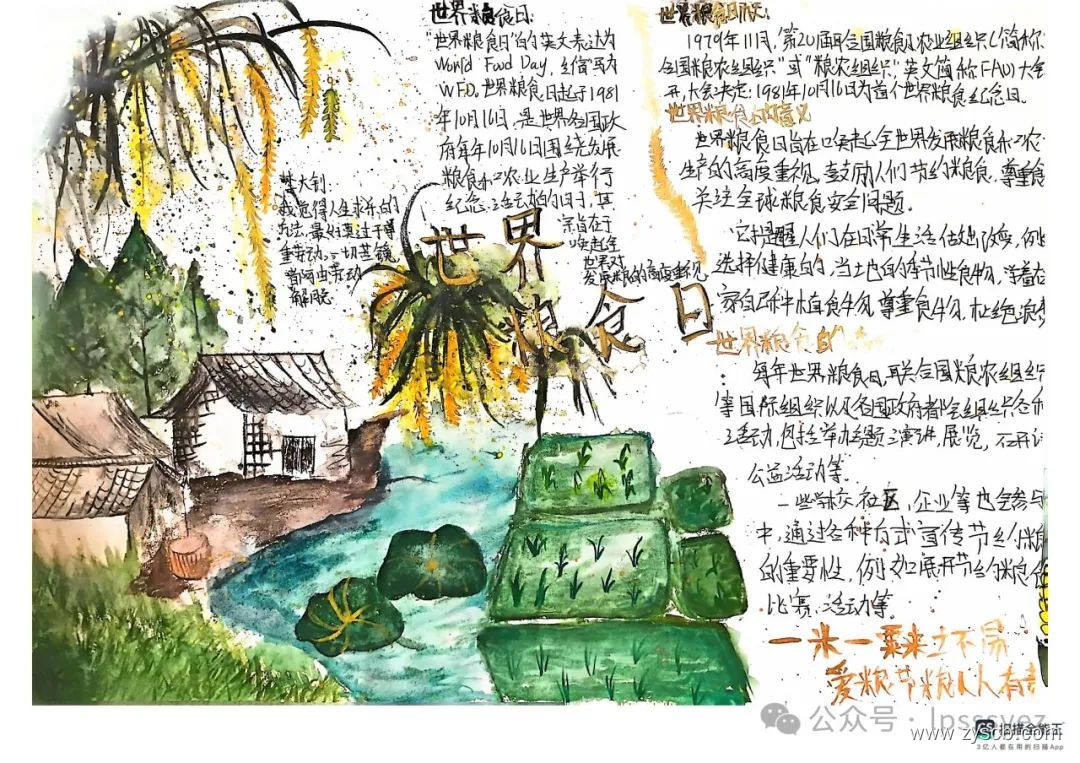 世界粮食日:
"世界粮食日"的英文表达为
World Food Day, 缩写为
WFD。世界粮食日起于1981
年10月16日, 是世界各国政
府每年10月16日围绕发展
粮食和农业生产举行
纪念活动的日子,其
宗旨在于
唤起全
世界对
发展粮的高度重视
意大利:
我觉得人生求乐的
方法,最好莫过于尊
重劳动。一切苦镜
皆可由劳动
解脱
世界
粮食日
1979年11月,第20届联合国粮食及农业组织(简称
合国粮农组织"或"粮农组织",英文简称FAO)大会
开,大会决定:1981年10月16日为首个世界粮食纪念日。
世界粮食日的意义
世界粮食日旨在唤起全世界发展粮食和农
生产的高度重视,鼓励人们节约粮食,尊重食
关注全球粮食安全问题。
它提醒人们在日常生活做出改变,例
选择健康的,当土也的季节性食物,
家自己种植食物,尊重食物,杜绝浪
世界粮食日
每年世界粮食日,联合国粮农组织
等国际组织以及各国政府都会组织
活动,包括举办主题演讲,展览,
公益活动等。
一些学校,社区,企业等也会参与
中,通过各种方式宣传节约粮
的重要性,例如展开节约粮食
比赛,活动等。
一米一粟来之不易
爱粮节粮人人有责
公众号·lpsssyez
www.zyscb.com
扫描全能王
3亿人都在用的扫描App